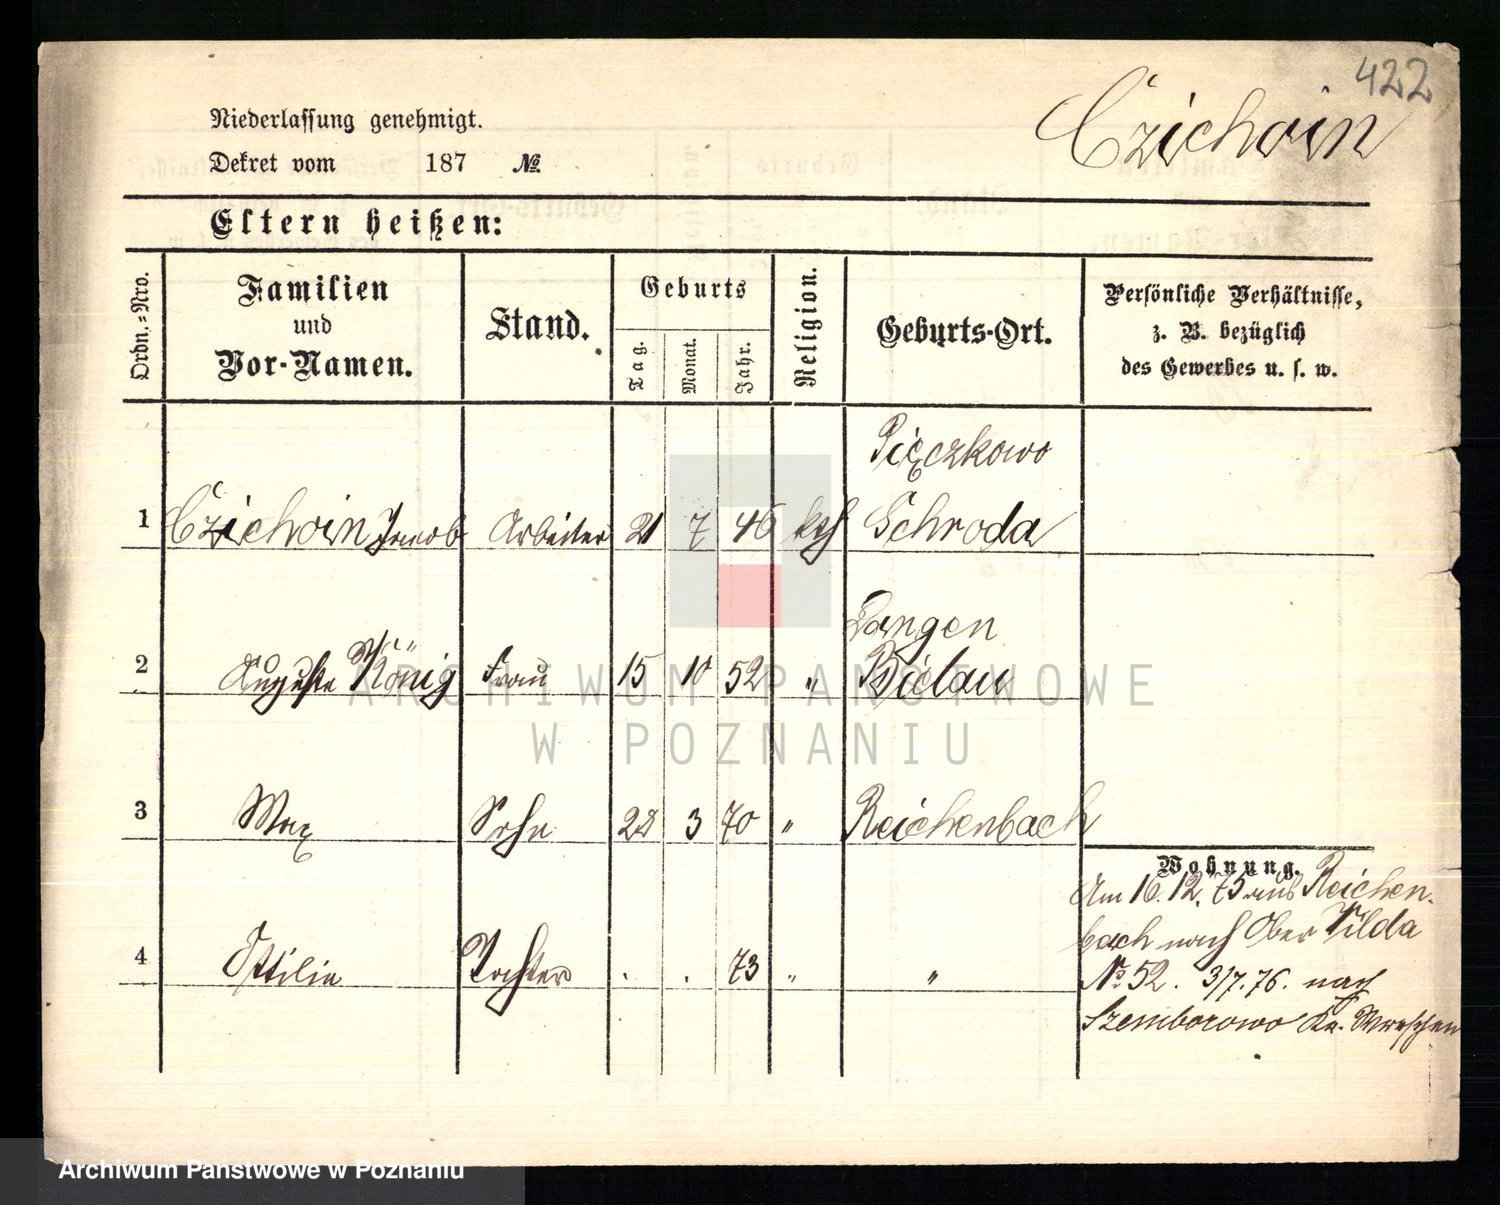 422
Czichoin
Niederlassung genehmigt.
Dekret vom 187 №
Eltern heißen:
Ordn.=Nro.
Familien
und
Vor-Namen.
Stand.
Geburts
Tag.
Monat.
Jahr.
Religion.
Geburts-Ort.
Persönliche Verhältnisse,
z. B. bezüglich
des Gewerbes u. s. w.
Pięczkowo
1 Czichoin Jacob Arbeiter 21 7 46 kth Schroda
Langen
2 Auguste König Frau 15 10 52 " Bielau
3 Max Sohn 28 3 70 " Reichenbach
Wohnung.
Am 16.12.75 aus Reichen-
bach nach Ober Wilda
4 Ottilie Tochter . . 73 " "
No 52. 3/7.76. nach
Szemborowo Kr. Wreschen
ARCHIWUM PAŃSTWOWE
W POZNANIU
Archiwum Państwowe w Poznaniu